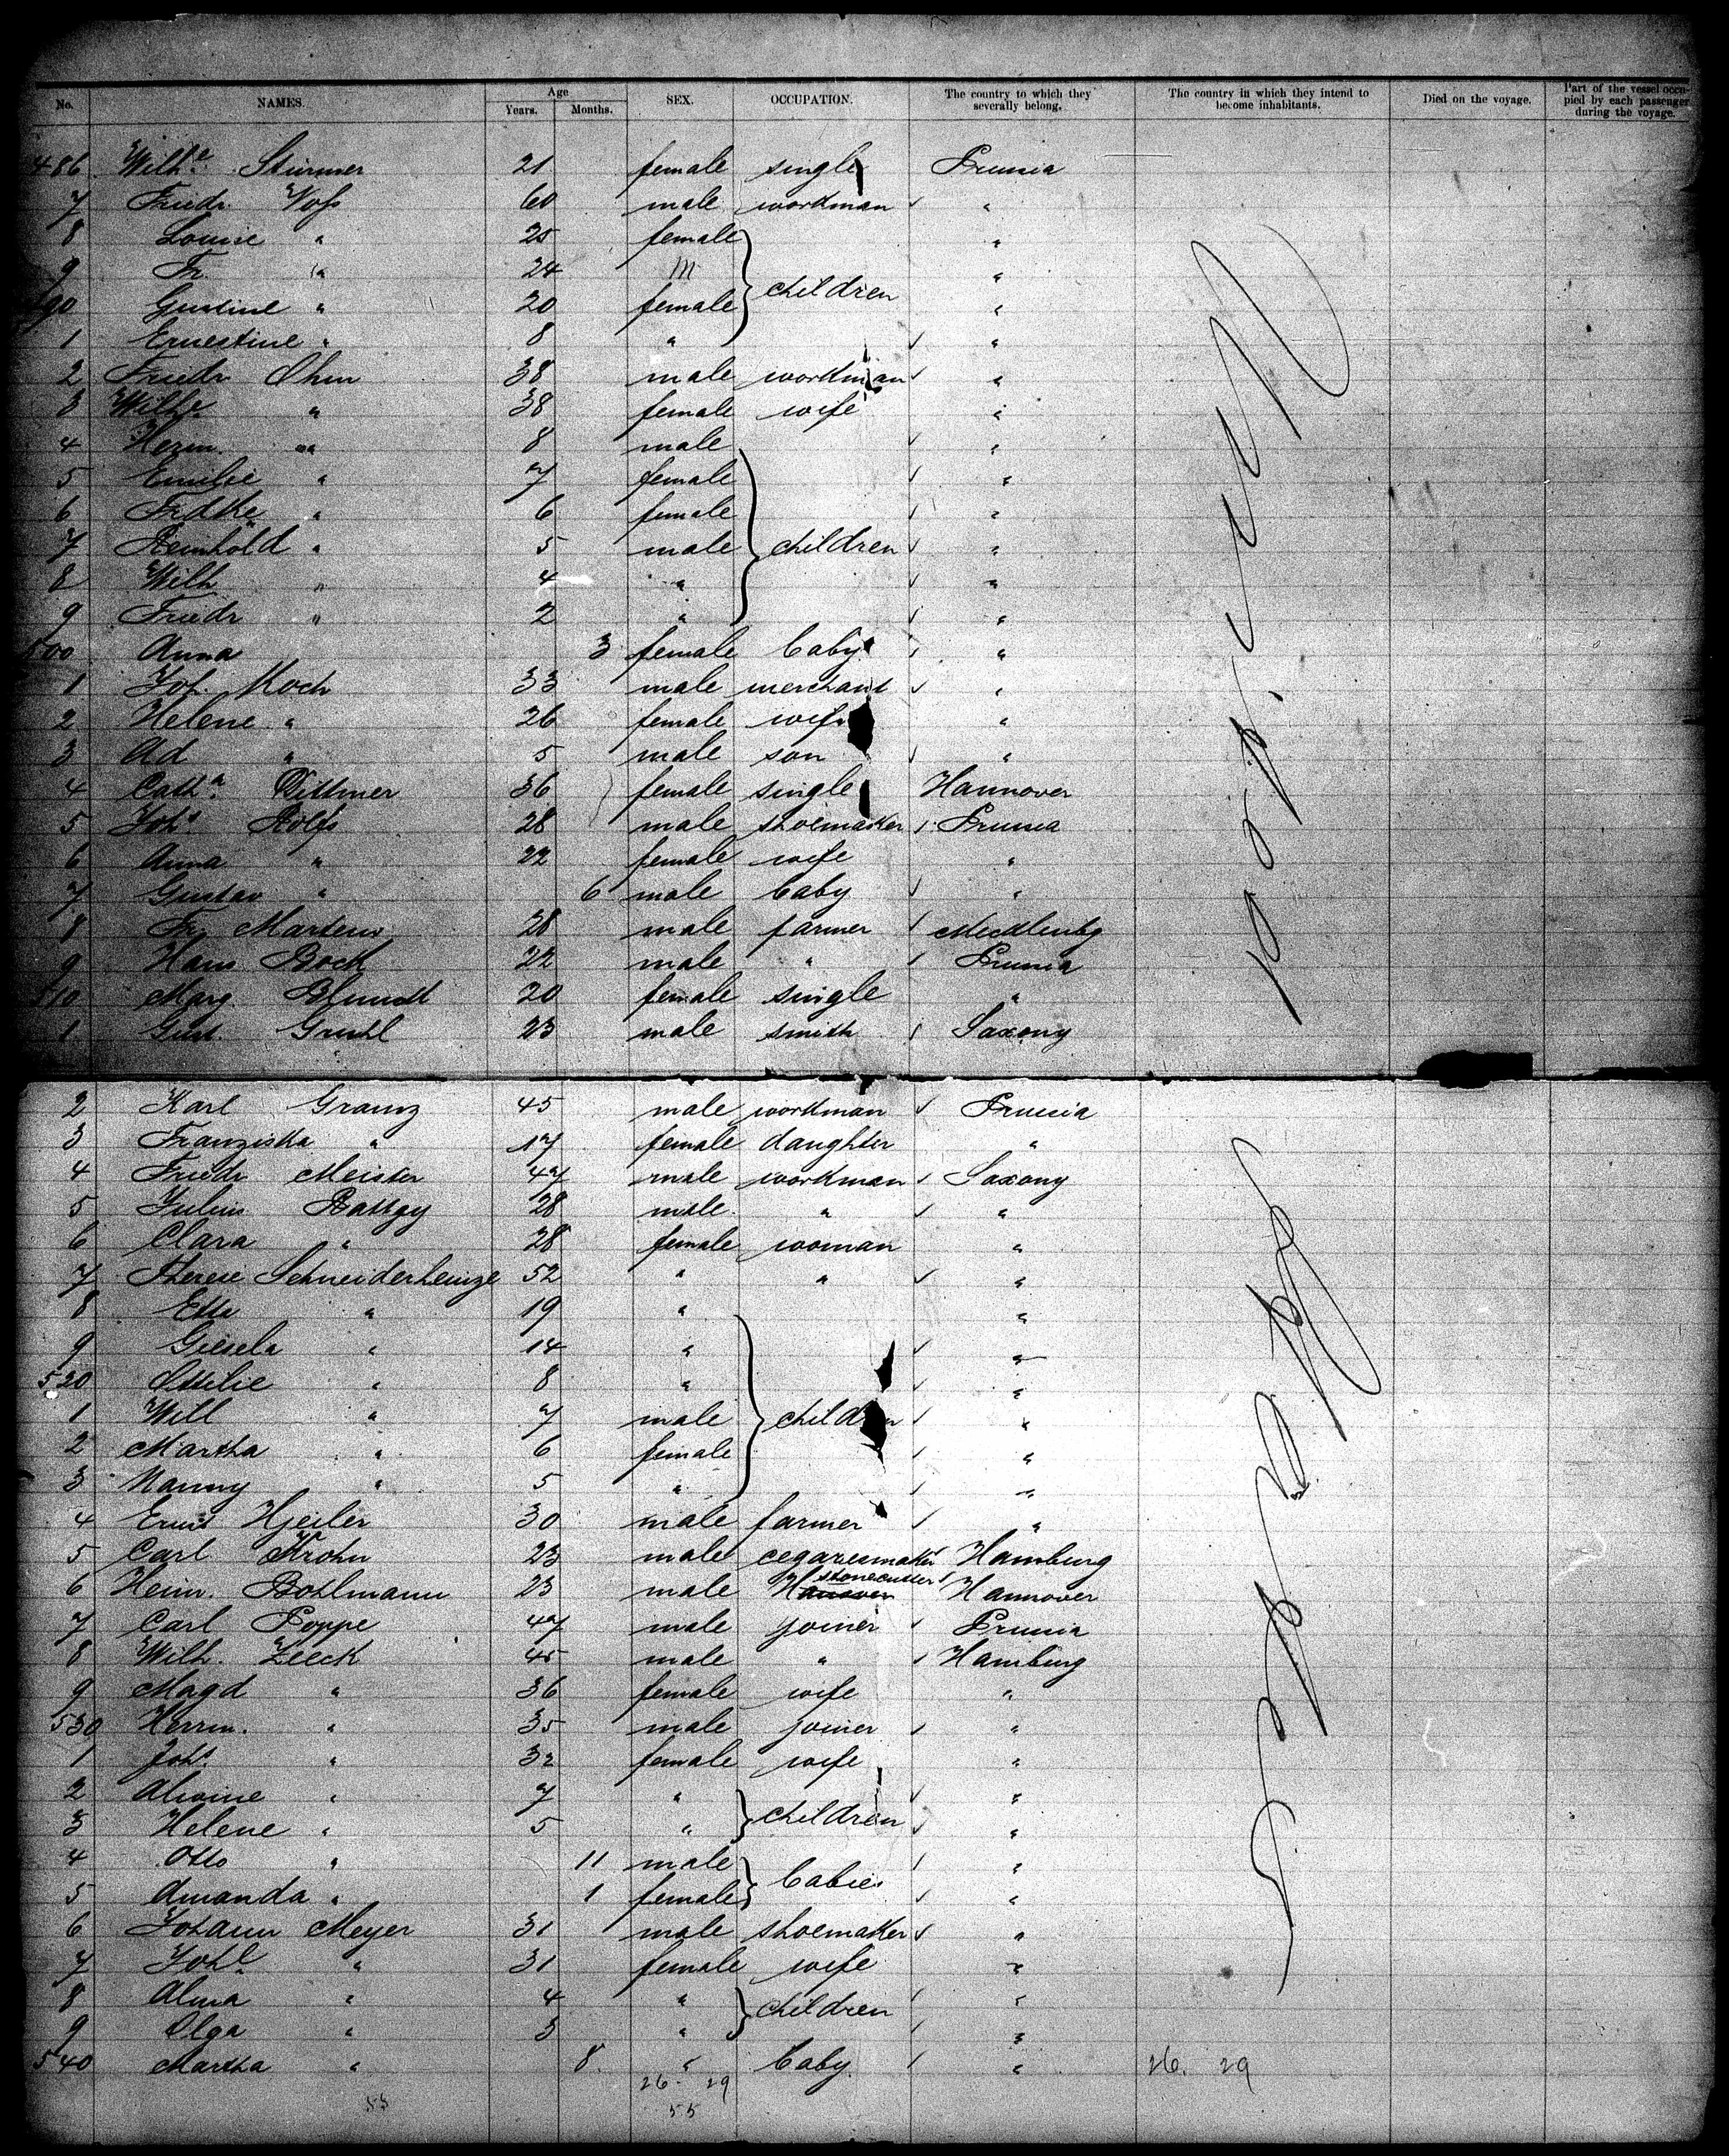 No. NAMES. Age Years. Months. SEX. OCCUPATION. The country to which they severally belong. The country in which they intend to become inhabitants. Died on the voyage. Part of the vessel occupied by each passenger during the voyage.
486 Wilh.e Stürmer 21 female single Prussia
7 Friedr. Voss 60 male workman ✓ "
8 Louise " 25 female "
9 Fr. " 24 m children "
490 " 20 female "
1 Ernestine " 8 " ✓ "
2 Friedr Ohm 38 male workman ✓ "
3 Wilhe " 38 female wife "
4 Herm. " 8 male ✓ "
5 Emilie " 7 female ✓ "
6 Frdke " 6 female ✓ "
7 Reinhold " 5 male children ✓ "
8 Wilh " 4 " ✓ "
9 Friedr " 2 " ✓ "
500 Anna 3 female baby "
1 Joh. Koch 33 male merchant ✓ "
2 Helene " 26 female wife "
3 Ad " 5 male son ✓ "
4 Cath.a Dittmer 36 female single Hannover
5 Johs Rolfs 28 male shoemaker Prussia
6 Anna " 22 female wife "
7 Gustav " 6 male baby ✓ "
8 Fr. Martens 28 male farmer Mecklenbg
9 Hans Bock 22 male " Prussia
510 Marg. 20 female single "
1 Gust. Gruhl 23 male smith Saxony
2 Karl 45 male workman ✓ Prussia
3 Franziska " 17 female daughter "
4 Friedr Meister 47 male workman ✓ Saxony
5 Julius 28 male " ✓ "
6 Clara " 28 female woman "
7 Therese Schneiderheinze 52 " " ✓ "
8 " 19 " "
9 Giesela " 14 " ✓ "
520 Ottilie " 8 " ✓ "
1 Will " 7 male children ✓ "
2 Martha " 6 female ✓ "
3 Nanny " 5 " ✓ "
4 Ernst 30 male farmer ✓ "
5 Carl Krohn 23 male cegaresmaker Hamburg
6 Heinr. Bohlmann 23 male Hanover stonecutter Hannover
7 Carl Poppe 47 male joiner ✓ Prussia
8 Wilh. Zeeck 45 male " ✓ Hamburg
9 Magd " 36 female wife "
530 Herrm. " 35 male joiner ✓ "
1 Johs " 32 female wife "
2 Alwine " 7 " ✓ "
3 Helene " 5 " children ✓ "
4 Otto " 11 male "
5 Amanda " 1 female babies ✓ "
6 Johann Meyer 31 male shoemaker ✓ "
7 Joh.e " 31 female wife "
8 Alma " 4 " children "
9 Olga " 3 " "
540 Martha " 8 " baby " 26. 29
26. 29
53 55